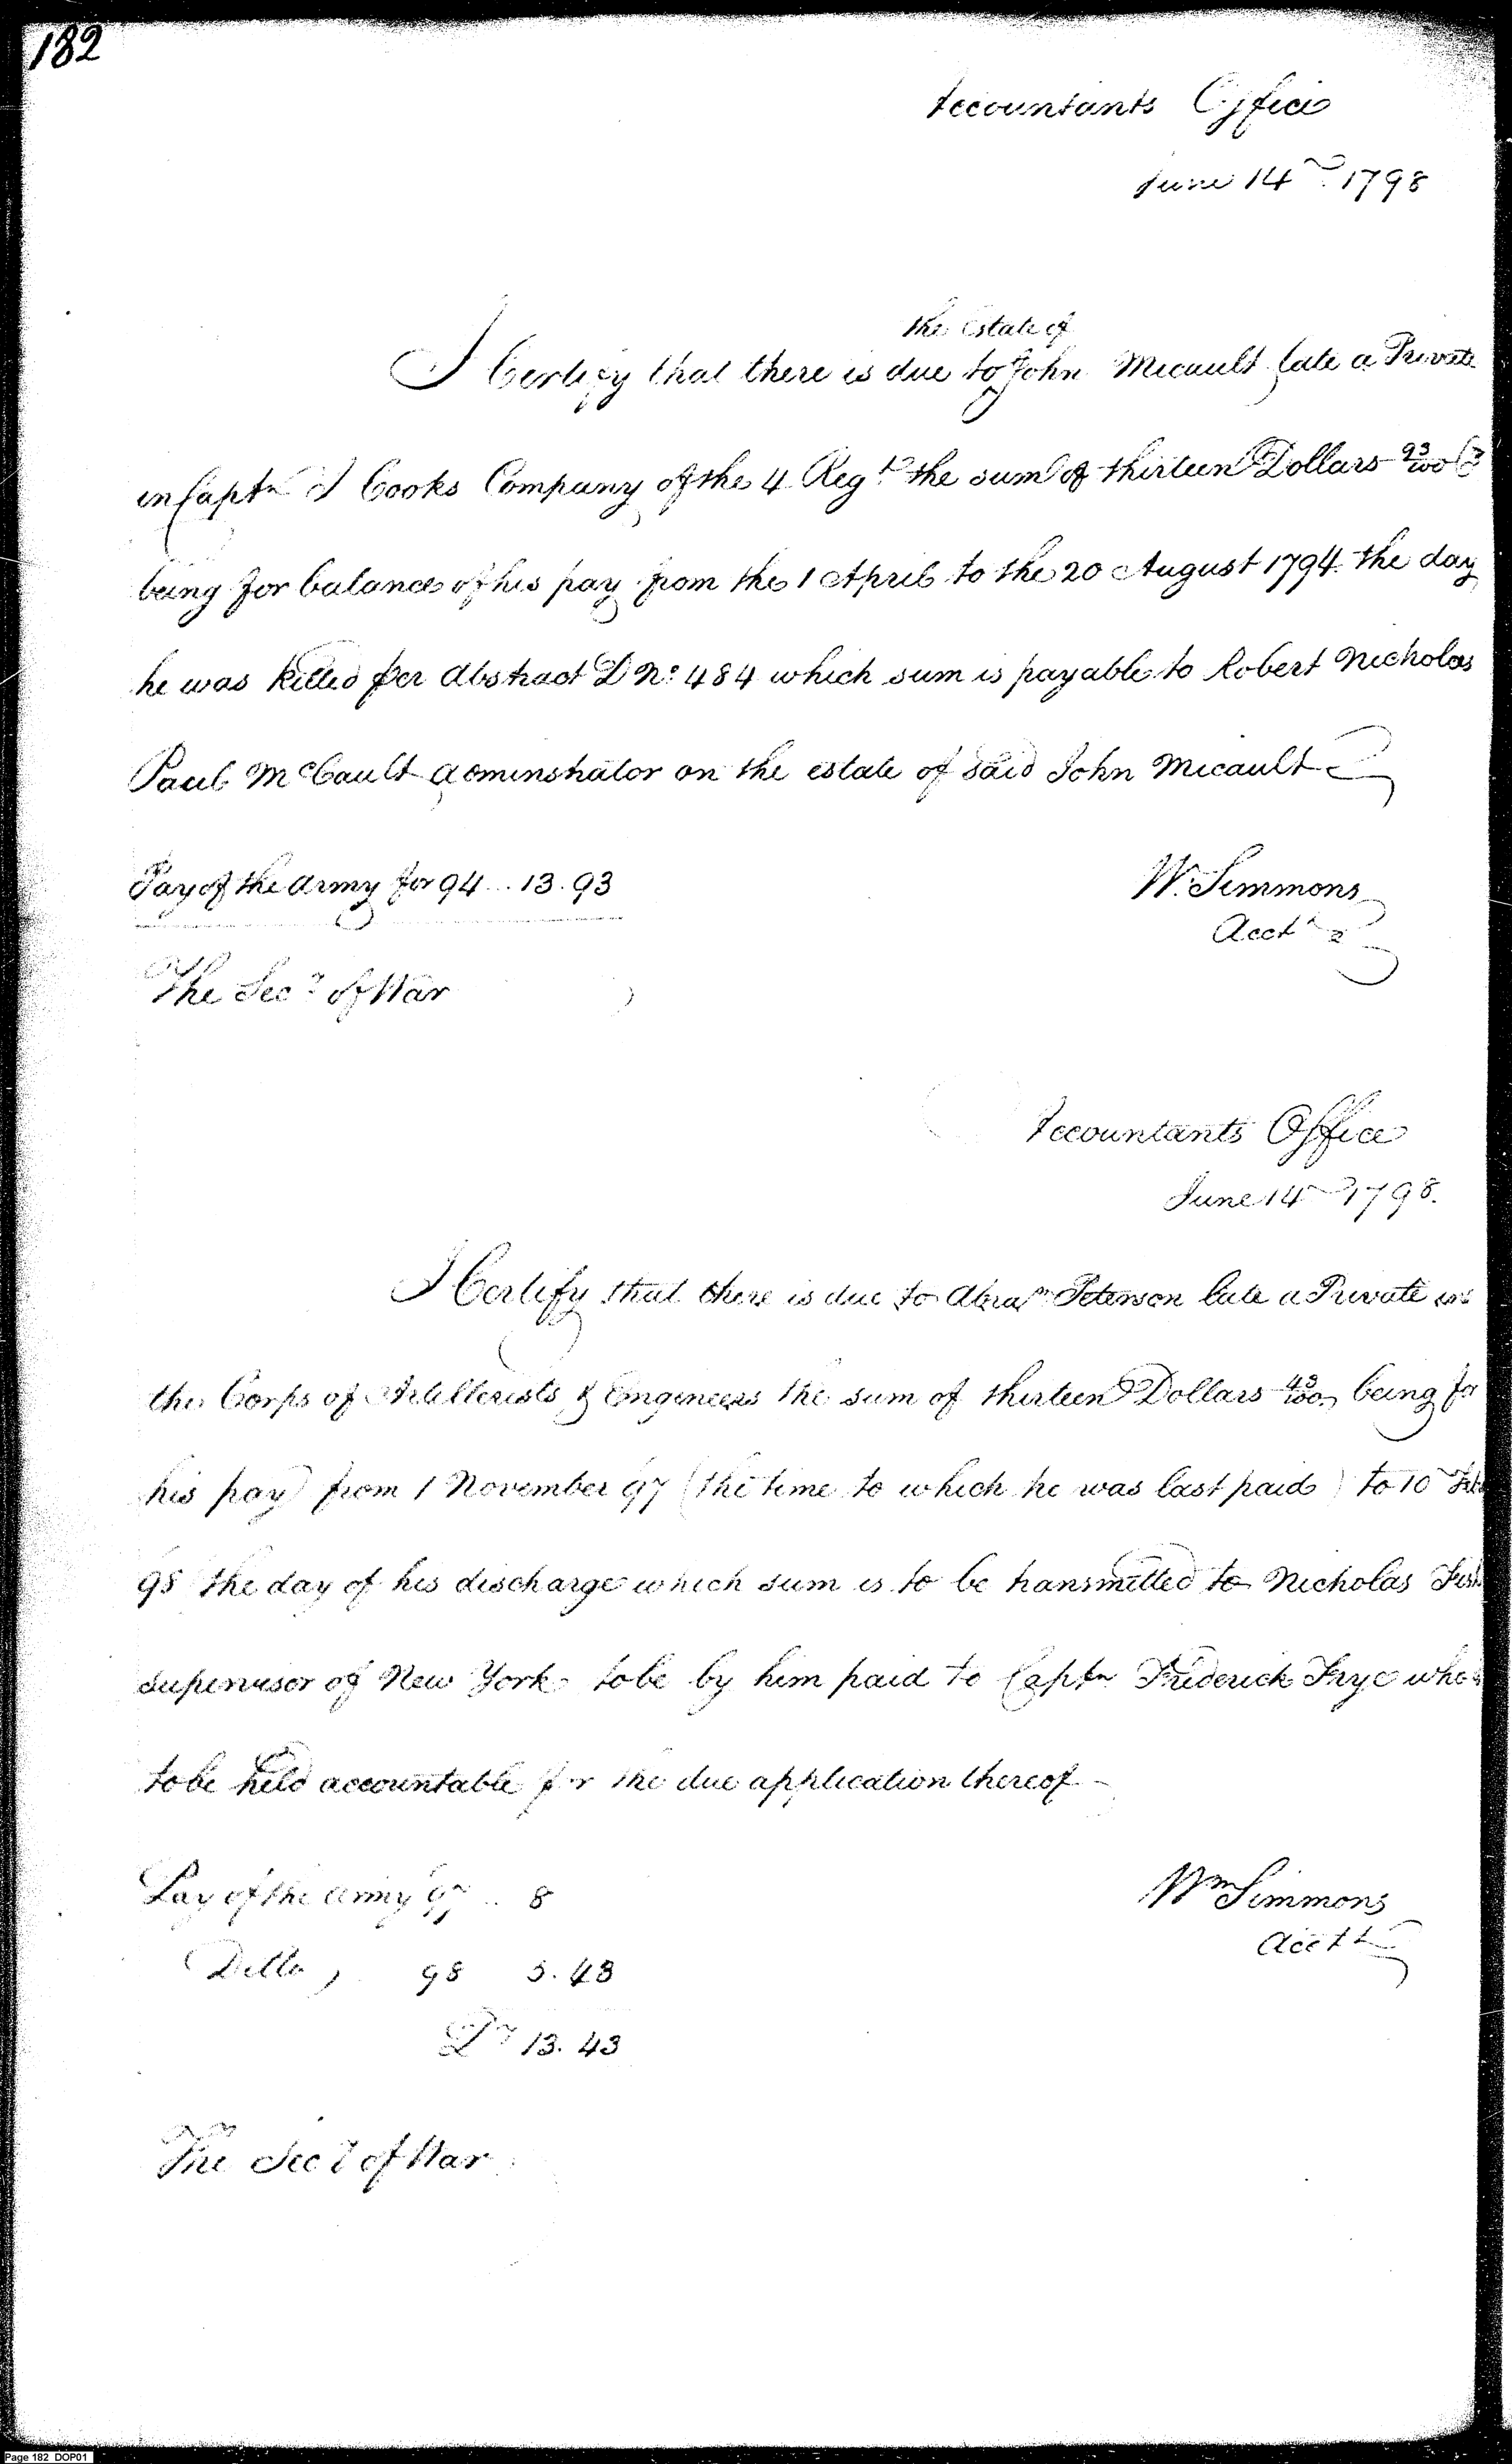 182
Accountants Office
June 14th. 1798
the Estate of
I Certify that there is due to John Micault late a Private
in Captn J Cooks Company of the 4 Regt. the sum of thirteen Dollars 93/100
being for balance of his pay from the 1 April to the 20 August 1794 the day
he was killed per Abstract D No. 484 which sum is payable to Robert Nicholas
Paul McCault adminstrator on the estate of said John Micault
Pay of the Army for 94 .. 13.93
W. Simmons
Acctt
The Secy of War
Accountants Office
June 14th 1798.
I Certify that there is due to Abram Peterson late a Private in
the Corps of Artillerists & Engineers the sum of thirteen Dollars 43/100 being for
his pay from 1 November 97 (the time to which he was last paid) to 10th Feb
98 the day of his discharge which sum is to be transmitted to Nicholas Fish
supervisor of New York to be by him paid to Captn Frederick Frye who is
to be held accountable for the due application thereof
Pay of the Army 97 .. 8
Ditto, 98 5.43
Drs 13.43
Wm Simmons
Acctt
The Secy of War
Page 182 DOP01